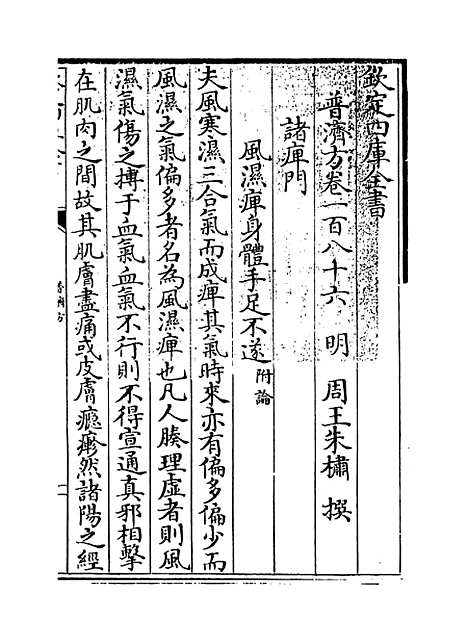 欽定四庫全書
普濟方卷一百八十六 明 周王朱橚 撰
諸痺門
風濕痺身體手足不遂附論
夫風寒濕三合氣而成痺其氣時來亦有偏多偏少而
風濕之氣偏多者名為風濕痺也凡人腠理虛者則風
濕氣傷之搏于血氣血氣不行則不得宣通真邪相擊
在肌肉之間故其肌膚盡痛或皮膚癮疹然諸陽之經
普濟方